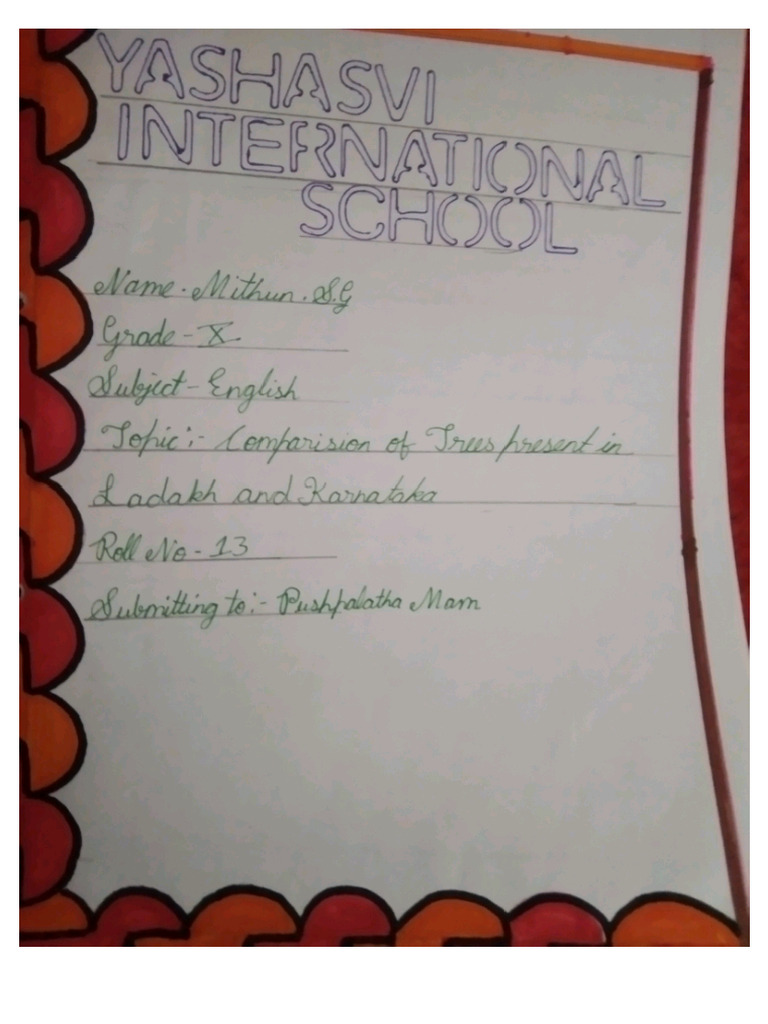 YASHASVI
INTERNATIONAL
SCHOOL
Name. Mithun. S.G
Grade - X
Subject - English
Topic:- Comparision of Trees present in
Ladakh and Karnataka
Roll No - 13
Submitting to:- Pushpalatha Mam